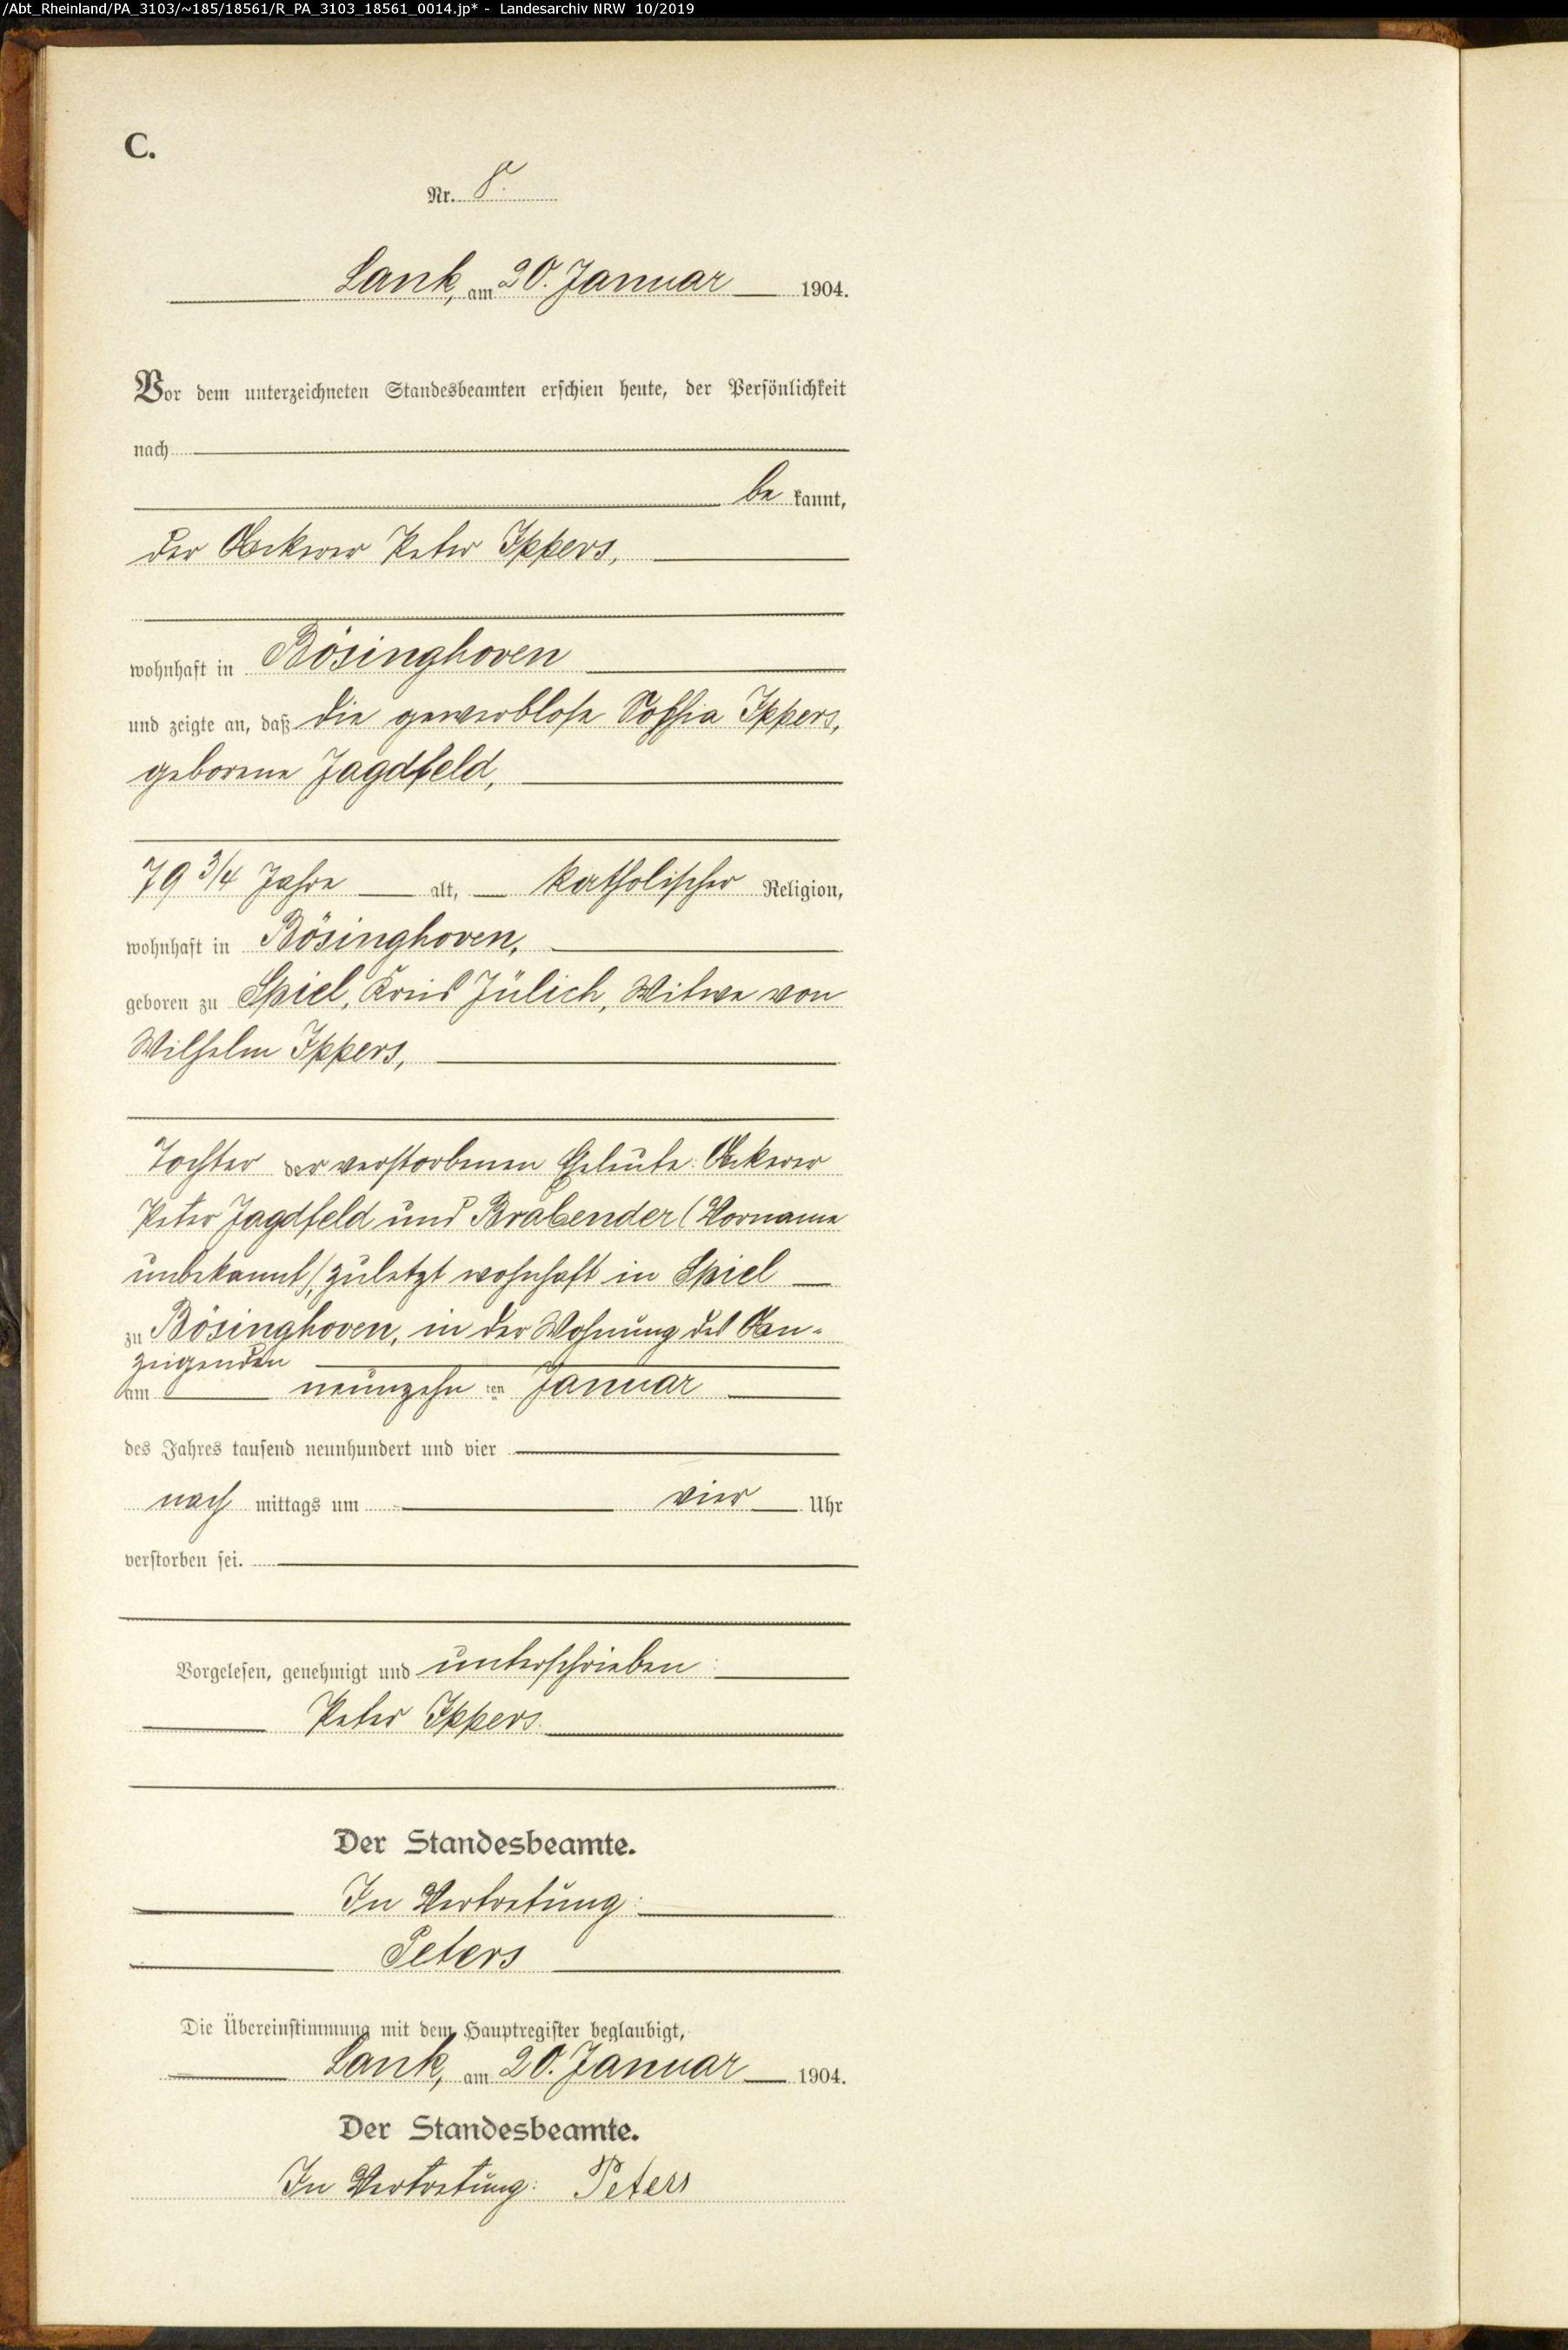 /Abt_Rheinland/PA_3103/~185/18561/R_PA_3103_18561_0014.jp* - Landesarchiv NRW 10/2019
C.
Nr. 8.
Lank, am 20. Januar 1904.
Vor dem unterzeichneten Standesbeamten erschien heute, der Persönlichkeit
nach
be kannt,
der Ackerer Peter Ippers,
wohnhaft in Bösinghoven
und zeigte an, daß die gewerblose Sofia Ippers,
geborene Jagdfeld,
79 3/4 Jahre alt, katholischer Religion,
wohnhaft in Bösinghoven,
geboren zu Spiel, Kreis Jülich, Witwe von
Wilhelm Ippers,
Tochter der verstorbenen Eheleute: Ackerer
Peter Jagdfeld und Brabender (Vorname
unbekannt), zuletzt wohnhaft in Spiel
zu Bösinghoven, in der Wohnung des An-
zeigenden
am neunzehn ten Januar
des Jahres tausend neunhundert und vier
nach mittags um vier Uhr
verstorben sei.
Vorgelesen, genehmigt und unterschrieben:
Peter Ippers.
Der Standesbeamte.
In Vertretung:
Peters
Die Übereinstimmung mit dem Hauptregister beglaubigt,
Lank, am 20. Januar 1904.
Der Standesbeamte.
In Vertretung: Peters